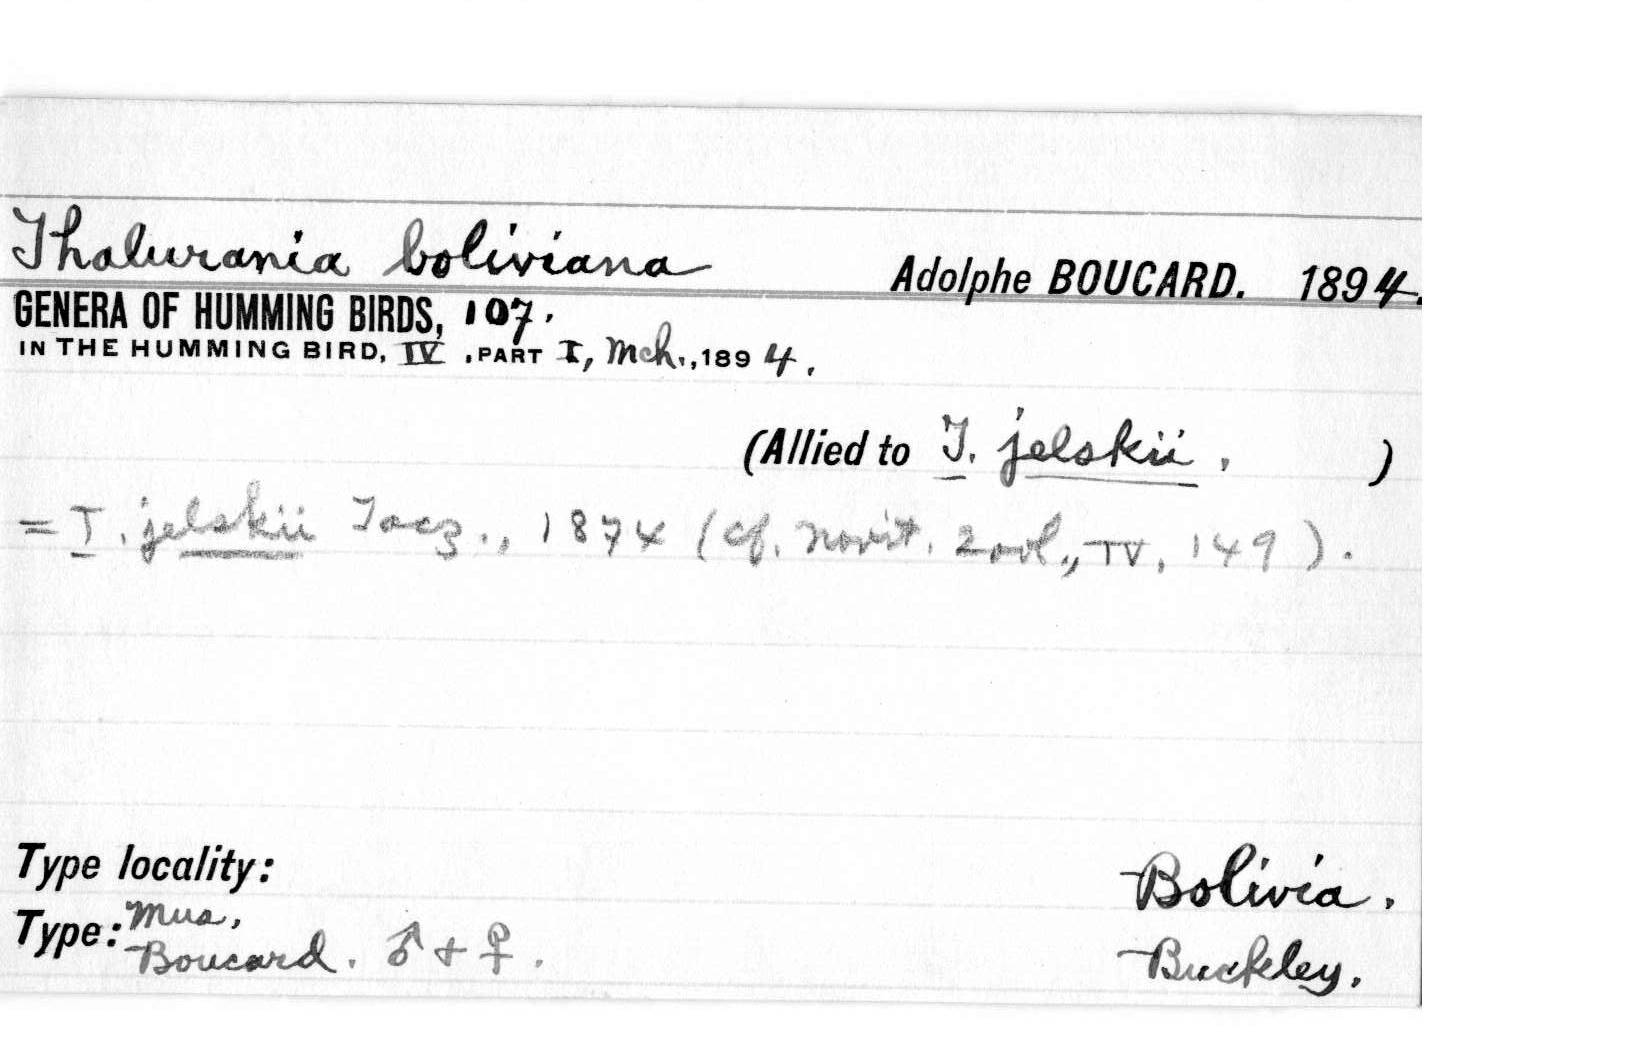 Thalurania boliviana Adolphe BOUCARD. 1894.
GENERA OF HUMMING BIRDS, 107.
IN THE HUMMING BIRD, IV, PART I, Mch., 1894.
(Allied to T. jelskii. )
= T. jelskii Tacz., 1874 (cf. Novit. Zool., IV, 149).
Type locality: Bolivia.
Type: Mus. Boucard. ♂ + ♀. Buckley.